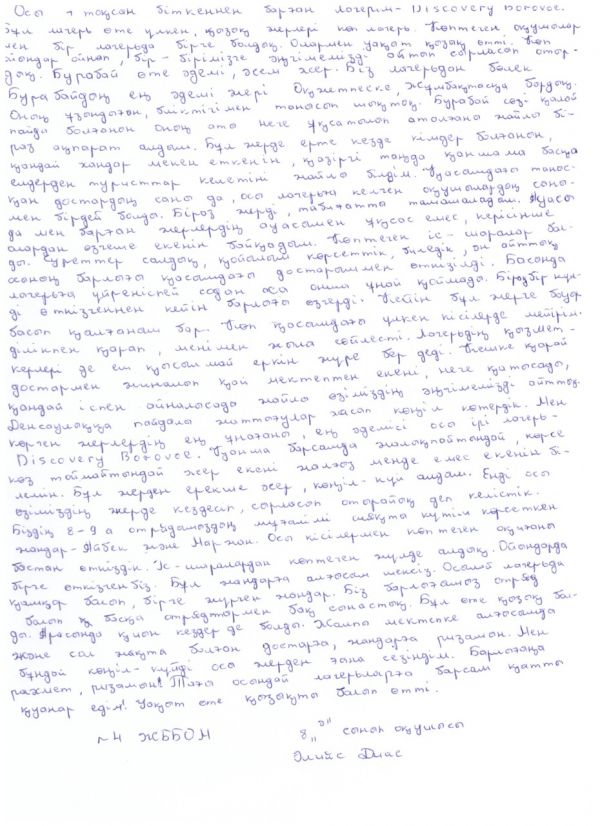 Осы 1 тоқсан біткеннен барған лагерим - Discovery Borovoe.
Бұл лагерь өте үлкен, қызық жерлері көп лагерь. Көптеген оқушылар
мен бір лагерьда бірге болдық. Олармен уақыт қызық өтті. Көп
ойындар ойнап, бір-бірімізге әңгімемізді айтып сырласып отыр-
дық. Бурабай өте әдемі, әсем жер. Біз лагерьдан бөлек
Бурабайдың ең әдемі жері Оқжетпеске, Жұмбақтасқа бардық.
Оның ұзындығын, биіктігімен танысып шықтық. Бурабай сөзі қалай
пайда болғанын оның аты неге ұқсатылып аталғаны жайлы бі-
раз ақпарат алдым. Бұл жерде ерте кезде кімдер болғанын,
қандай хандар мекен еткенін, қазіргі таңда қаншама басқа
елдерден туристтар келетіні жайлы білдім. Қасымдағы таныс-
қан достардың саны да, осы лагерьға келген оқушылардың саны-
мен бірдей болды. Біраз жерді, табиғатты тамашаладым. Ауасы
да мен барған жерлердің ауасымен ұқсас емес, керісінше
олардан өзгеше екенін байқадым. Көптеген іс-шаралар бол-
ды. Суреттер салдық, қойылым көрсеттік, биледік, ән айттық
соның барлығы қасымдағы достарыммен өткізілді. Басында
лагерьға үйреніспей содан аса онша ұнай қоймады. Бірақ бір күн-
ді өткізгеннен кейін барлығы өзгерді. Кейін бұл жерге бауыр
басып қалғаным бар. Көп қасымдағы үлкен кісілерде мейірім-
ділікпен қарап, менімен жылы сөйлесті. Лагердің қызмет-
керлері де еш қысылмай еркін жүре бер деді. Кешке қарай
достармен жиналып қай мектептен екені, неге қатысады,
қандай іспен айналысады жайлы өзіміздің әңгімемізді айттық.
Денсаулыққа пайдалы жаттығулар жасап көңіл көтердік. Мен
көрген жерлердің ең ұнағаны, ең әдемісі осы ірі лагерь-
Discovery Borovoe. Қанша барсамда жалықпайтындай, көрсе
көз тоймайтындай жер екені жалғыз менде емес екенін бі-
лемін. Бұл жерден ерекше әсер, көңіл-күй алдым. Енді осы
өзіміздің жерде кездесіп, сырласып отырайық деп келістік.
Біздің 8-9 а отрядымыздың мұғалімі сияқты күтім көрсеткен
жандар - Айбек және Маржан. Осы кісілермен көптеген оқиғаны
бастан өткіздік. Іс-шыралардан көптеген жүлде алдық. Ойындарда
бірге өткізгенбіз. Бұл жандарға алғысым шексіз. Осылай лагерьда
қамқор болып, бірге жүрген жандар. Біз барлығымыз отряд
болып қ басқа отрядтармен бақ сынастық. Бұл өте қызық бол-
ды. Арасында қиын кездер де болды. Жалпы мектепке алғысымда
және сол жақта болған достарға, жандарға ризамын. Мен
бұндай көңіл-күйді осы жерден ғана сезіндім. Барлығына
рахмет, ризамын! Тағы осындай лагерьларға барсам қатты
қуанар едім! Уақыт өте қызықты болып өтті.
№4 ЖББОМ 8 "Ә" сынып оқушысы
Әлийс Диас